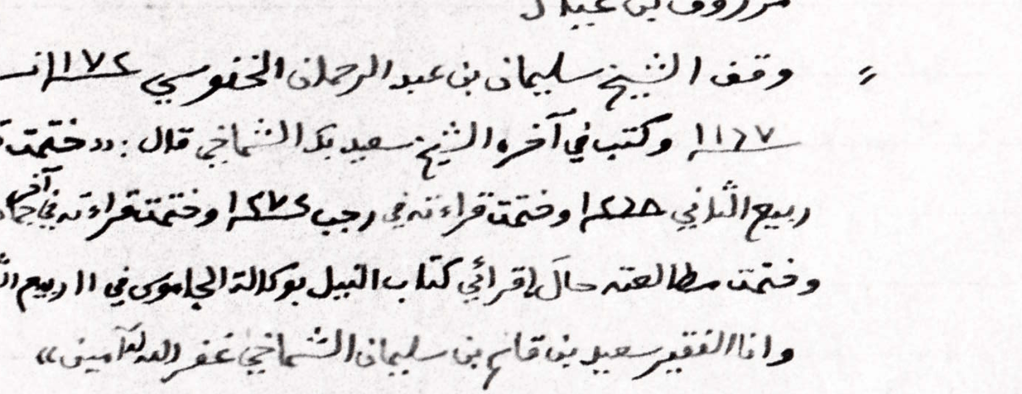 مرزوق بن عبد
وقف الشيخ سليمان بن عبد الرحمان النفوسي ١١٧٢
١١٦٧ وكتب في آخره الشيخ سعيد بكر الشماخي قال: «ختمت
ربيع الثاني ١٢٦٨ وختمت قراءته في رجب ١٢٧٢ وختمت قراءته في آخر
وختمت مطالعته حال إقرائي كتاب النيل بوكالة الجاموس في ١١ ربيع
وانا الفقير سعيد بن قاسم بن سليمان الشماخي غفر الله له آمين»